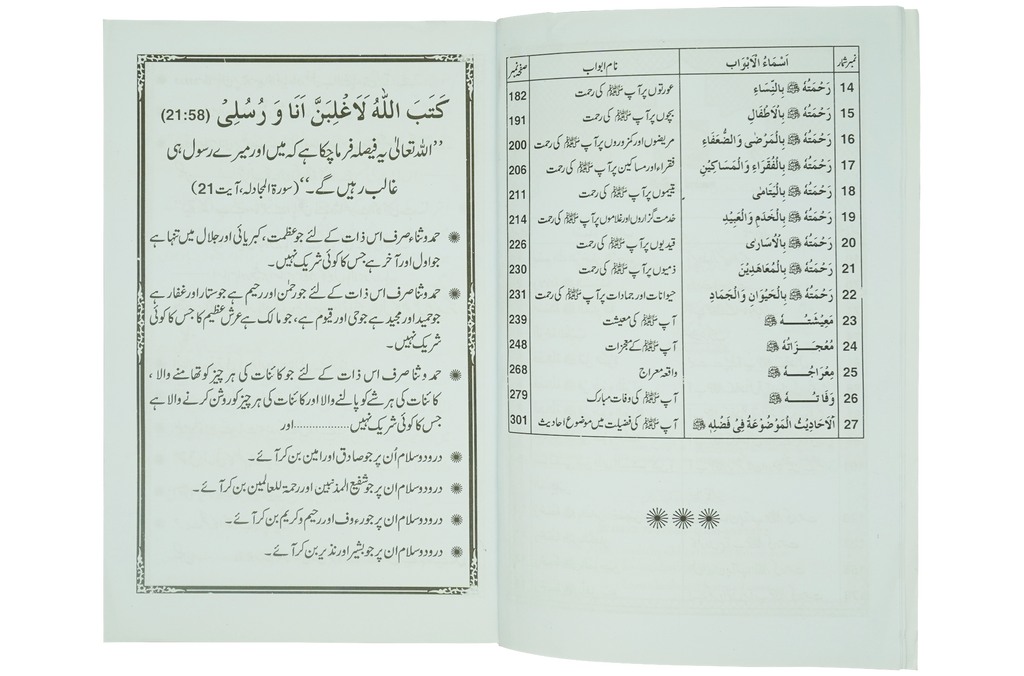 نمبر شمار اَسْمَاءُ الْاَبْوَاب نام ابواب صفحہ نمبر
14 رَحْمَتُهٗ ﷺ بِالنِّسَاءِ عورتوں پر آپ ﷺ کی رحمت 182
15 رَحْمَتُهٗ ﷺ بِالْاَطْفَالِ بچوں پر آپ ﷺ کی رحمت 191
16 رَحْمَتُهٗ ﷺ بِالْمَرْضٰی وَالضُّعَفَاءِ مریضوں اور کمزوروں پر آپ ﷺ کی رحمت 200
17 رَحْمَتُهٗ ﷺ بِالْفُقَرَاءِ وَالْمَسَاكِيْنِ فقراء اور مساکین پر آپ ﷺ کی رحمت 206
18 رَحْمَتُهٗ ﷺ بِالْيَتَامٰی یتیموں پر آپ ﷺ کی رحمت 211
19 رَحْمَتُهٗ ﷺ بِالْخَدَمِ وَالْعَبِيْدِ خدمت گزاروں اور غلاموں پر آپ ﷺ کی رحمت 214
20 رَحْمَتُهٗ ﷺ بِالْاُسَارٰی قیدیوں پر آپ ﷺ کی رحمت 226
21 رَحْمَتُهٗ ﷺ بِالْمُعَاهَدِيْنَ ذمیوں پر آپ ﷺ کی رحمت 230
22 رَحْمَتُهٗ ﷺ بِالْحَيْوَانِ وَالْجَمَادِ حیوانات اور جمادات پر آپ ﷺ کی رحمت 231
23 مَعِيْشَتُهٗ ﷺ آپ ﷺ کی معیشت 239
24 مُعْجِزَاتُهٗ ﷺ آپ ﷺ کے معجزات 248
25 مِعْرَاجُهٗ ﷺ واقعہ معراج 268
26 وَفَاتُهٗ ﷺ آپ ﷺ کی وفات مبارک 279
27 اَلْاَحَادِيْثُ الْمَوْضُوْعَةُ فِیْ فَضْلِهٖ ﷺ آپ ﷺ کی فضیلت میں موضوع احادیث 301
كَتَبَ اللّٰهُ لَاَغْلِبَنَّ اَنَا وَ رُسُلِیْ (21:58)
’’اللہ تعالیٰ یہ فیصلہ فرما چکا ہے کہ میں اور میرے رسول ہی
غالب رہیں گے۔‘‘ (سورۃ المجادلہ، آیت 21)
حمد و ثناء صرف اس ذات کے لئے جو عظمت، کبریائی اور جلال میں تنہا ہے
جو اول اور آخر ہے جس کا کوئی شریک نہیں۔
حمد و ثنا صرف اس ذات کے لئے جو رحمٰن اور رحیم ہے جو ستار اور غفار ہے
جو حمید اور مجید ہے جو حی اور قیوم ہے، جو مالک ہے عرش عظیم کا جس کا کوئی
شریک نہیں۔
حمد و ثنا صرف اس ذات کے لئے جو کائنات کی ہر چیز کو تھامنے والا،
کائنات کی ہر شے کو پالنے والا اور کائنات کی ہر چیز کو روشن کرنے والا ہے
جس کا کوئی شریک نہیں.................. اور
درود و سلام اُن پر جو صادق اور امین بن کر آئے۔
درود و سلام ان پر جو شفیع المذنبین اور رحمۃ للعالمین بن کر آئے۔
درود و سلام ان پر جو رءوف اور رحیم و کریم بن کر آئے۔
درود و سلام ان پر جو بشیر اور نذیر بن کر آئے۔